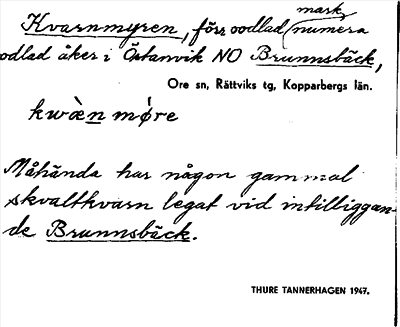 mark,
Kvarnmyren, förr oodlad (numera
odlad åker i Östanvik NO Brunnsbäck,
Ore sn, Rättviks tg, Kopparbergs län.
kwæ̀n mǿre
Måhända har någon gammal
skvaltkvarn legat vid intilliggan-
de Brunnsbäck.
THURE TANNERHAGEN 1947.